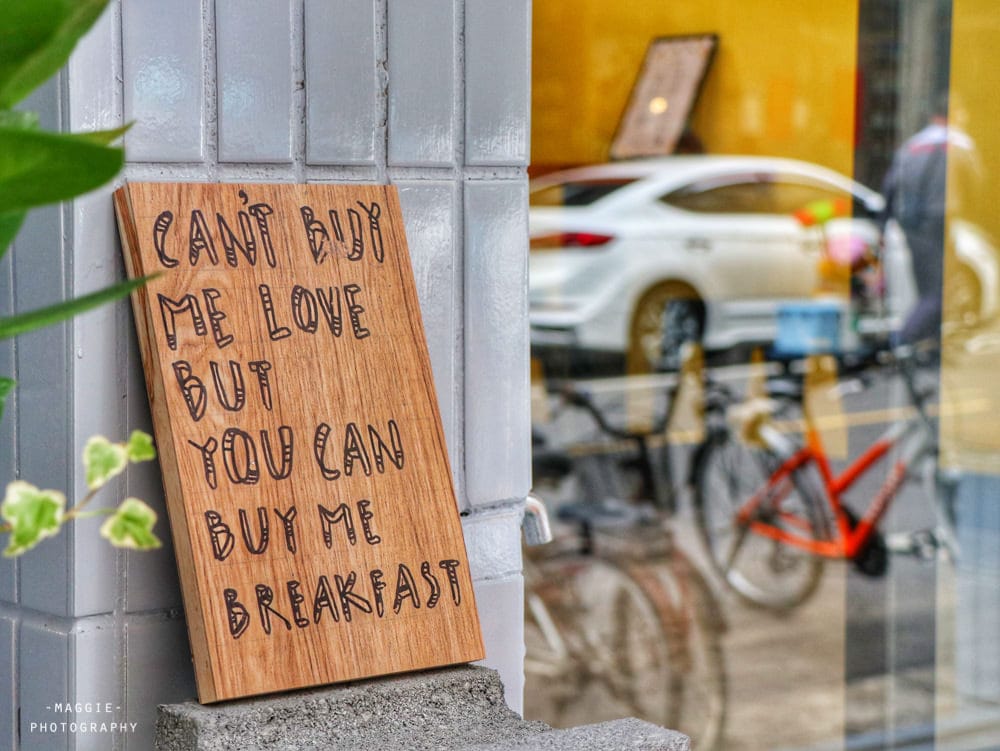 CAN'T BUY
ME LOVE
BUT
YOU CAN
BUY ME
BREAKFAST
-MAGGIE-
PHOTOGRAPHY